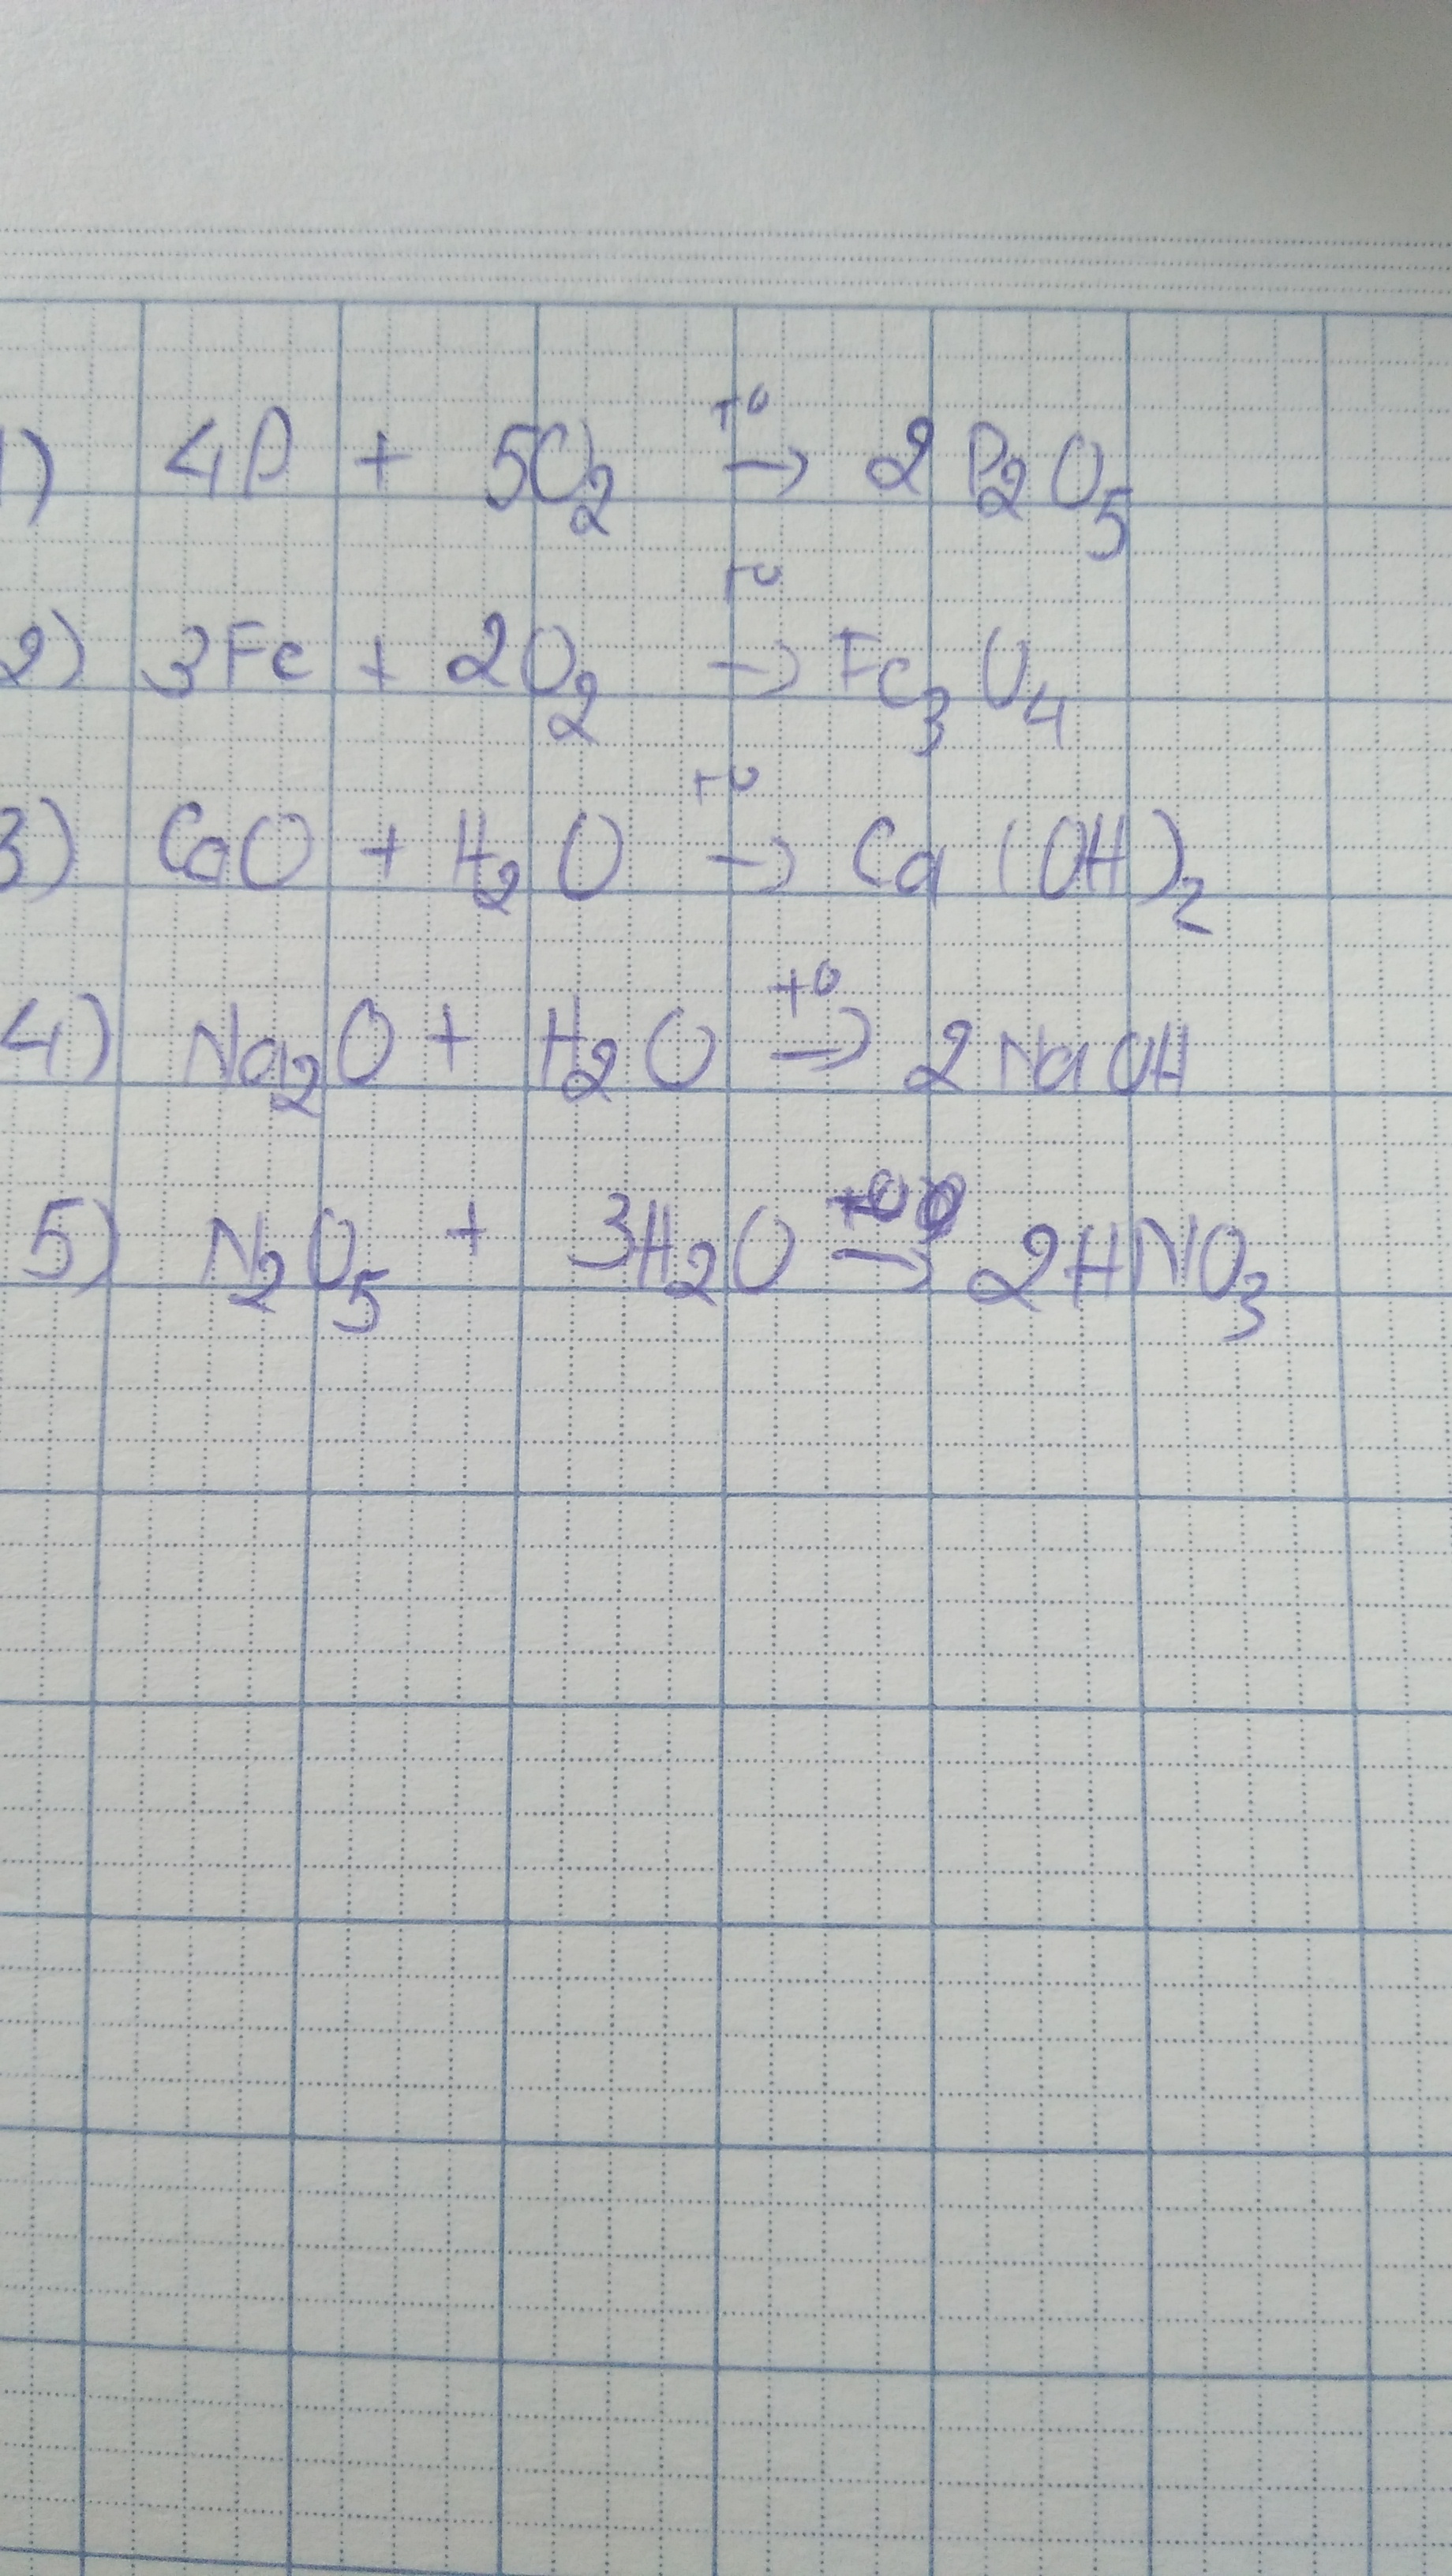 1) 4P + 5O₂ t° → 2P₂O₅
2) 3Fe + 2O₂ t° → Fe₃O₄
3) CaO + H₂O t° → Ca(OH)₂
4) Na₂O + H₂O t° → 2NaOH
5) N₂O₅ + 3H₂O → 2HNO₃